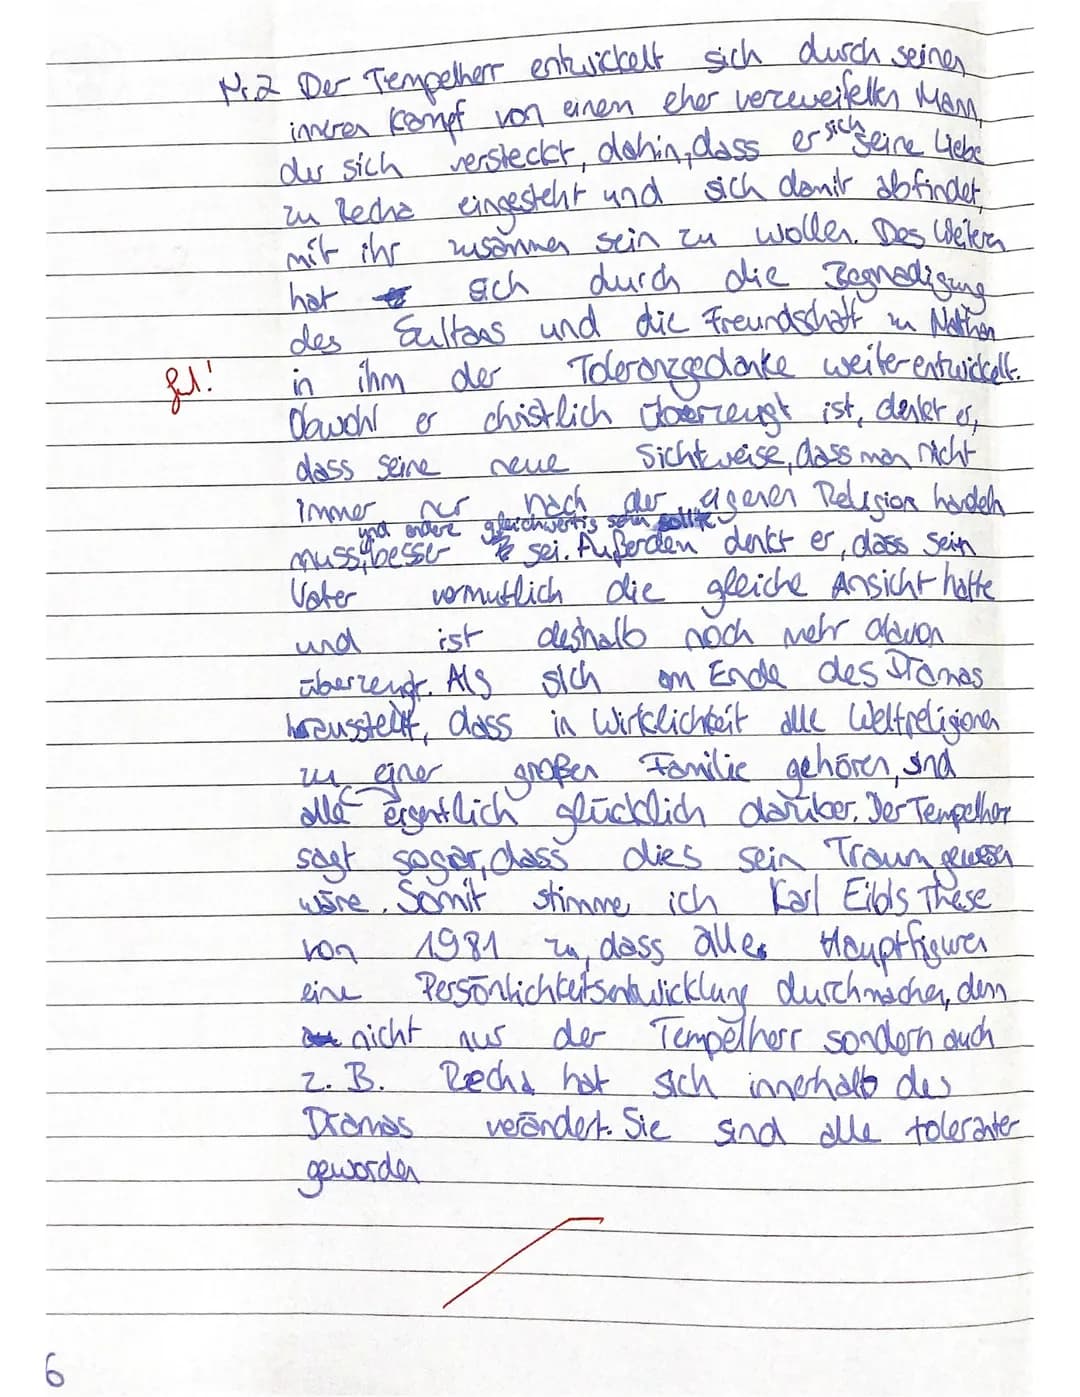 Nr.2 Der Tempelherr entwickelt sich durch seinen
inneren Kampf von einem eher verzweifelten Mann,
der sich versteckt, dahin, dass er sich seine Liebe
zu Recha eingesteht und sich damit abfindet,
mit ihr zusammen sein zu wollen. Des Weiteren
hat sich durch die Begnadigung
des Sultans und die Freundschaft zu Nathan
gut! in ihm der Toleranzgedanke weiterentwickelt.
Obwohl er christlich überzeugt ist, denkt er,
dass seine neue Sichtweise, dass man nicht
immer nur nach der eigenen Religion handeln
und andere gleichwertig sein sollte
muss, besser sei. Außerdem denkt er, dass sein
Vater vermutlich die gleiche Ansicht hatte
und ist deshalb noch mehr davon
überzeugt. Als sich am Ende des Dramas
herausstellt, dass in Wirklichkeit alle Weltreligionen
zu einer großen Familie gehören, sind
alle eigentlich glücklich darüber. Der Tempelherr
sagt sogar, dass dies sein Traum gewesen
wäre. Somit stimme ich Karl Eibls These
von 1981 zu, dass alle Hauptfiguren
eine Persönlichkeitsentwicklung durchmachen, denn
nicht nur der Tempelherr sondern auch
z. B. Recha hat sich innerhalb des
Dramas verändert. Sie sind alle toleranter
geworden
6